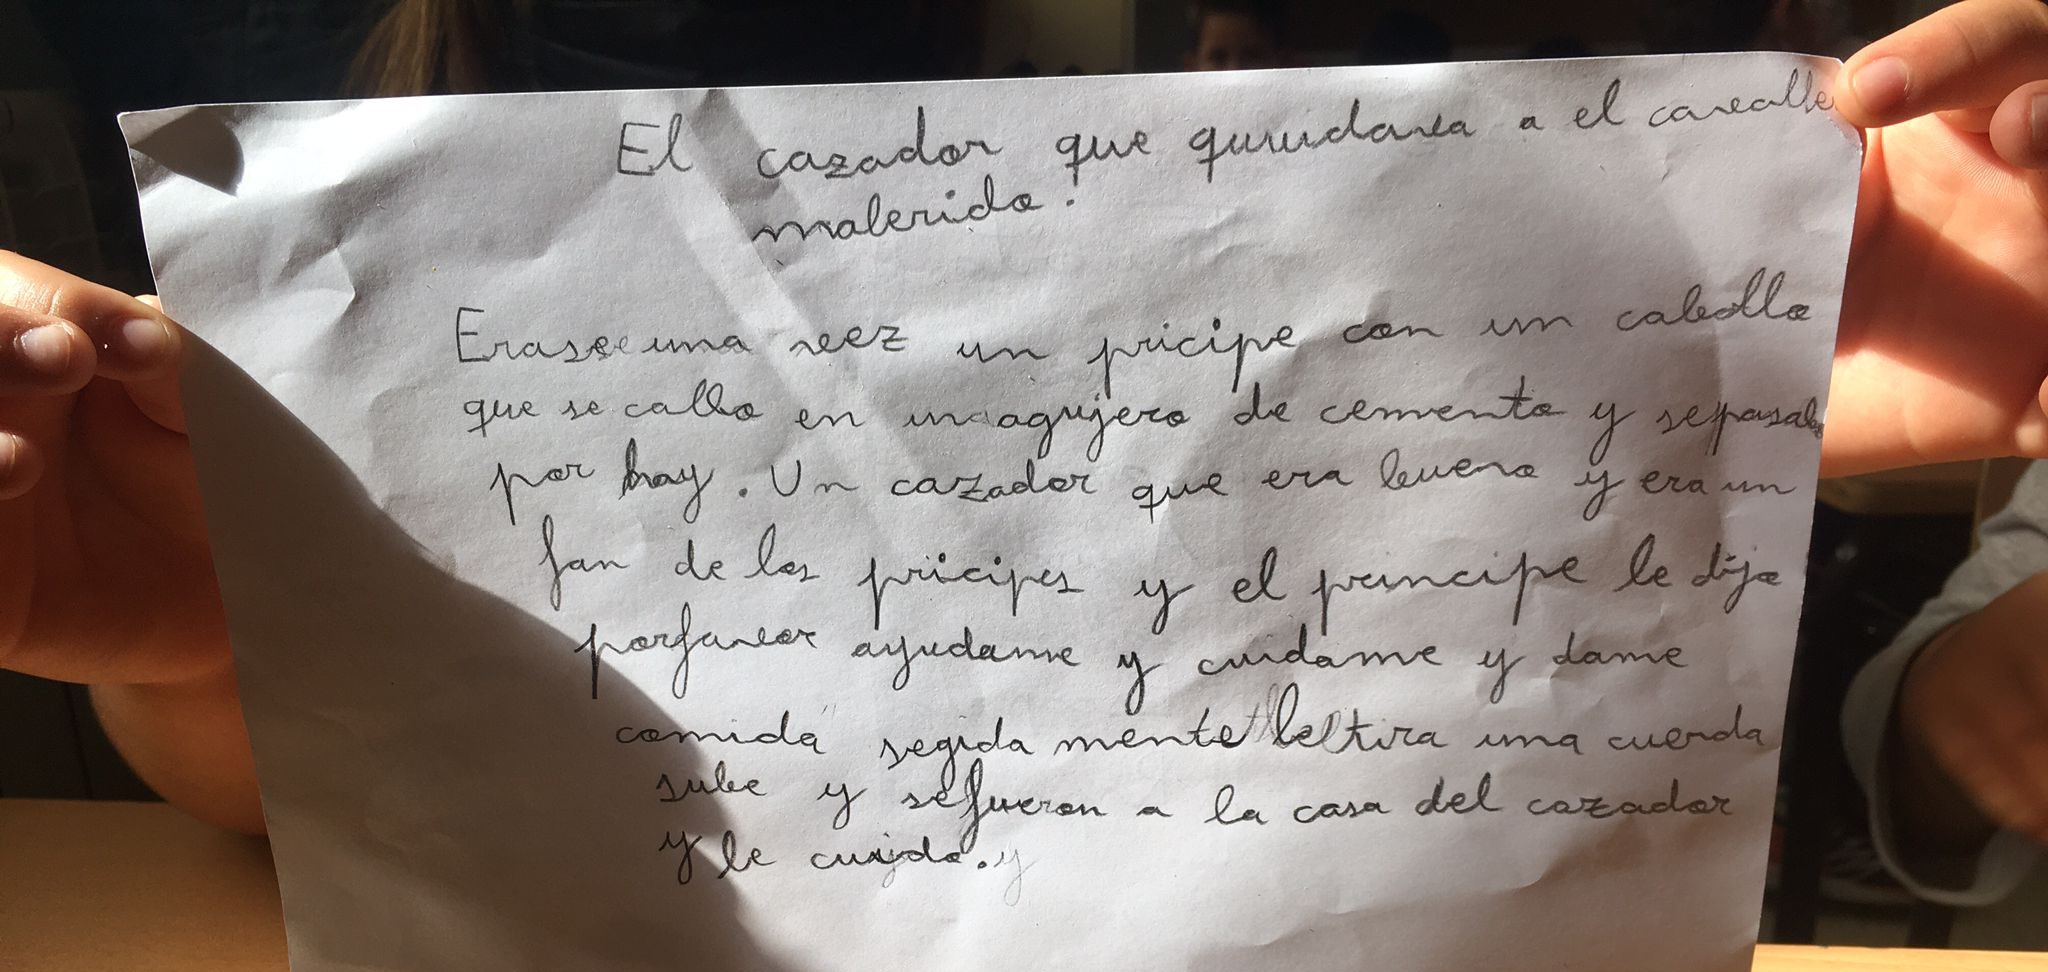 El cazador que quuidava a el cavalle
malerido.
Erasee una veez un pricipe con un caballo
que se callo en un agujero de cemento y sepasabo
por hay. Un cazador que era bueno y era un
fan de los pricipes y el principe le dijo
porfavor ayudame y cuidame y dame
comida segida mente le tira una cuerda
sube y sefueron a la casa del cazador
y le cuido. y